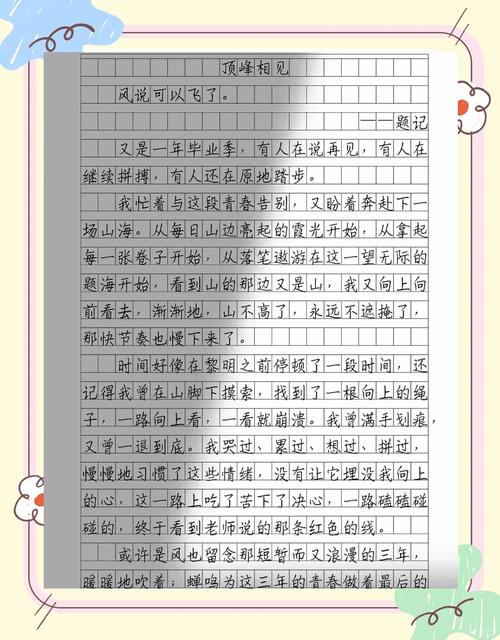 顶峰相见
风说可以飞了。
——题记
又是一年毕业季，有人在说再见，有人在
继续拼搏，有人还在原地踏步。
我忙着与这段青春告别，又盼着奔赴下一
场山海。从每日山边亮起的霞光开始，从拿起
每一张卷子开始，从落笔遨游在这一望无际的
题海开始，看到山的那边又是山，我又向上向
前看去，渐渐地，山不高了，永远不遮掩了，
那快节奏也慢下来了。
时间好像在黎明之前停顿了一段时间，还
记得我曾在山脚下摸索，找到了一根向上的绳
子，一路向上看，一看就崩溃。我曾满手划痕，
又曾一退到底。我哭过、累过、想过、拼过，
慢慢地习惯了这些情绪，没有让它埋没我向上
的心，这一路上吃了苦下了决心，一路磕磕碰
碰的，终于看到老师说的那条红色的线。
或许是风也留念那短暂而又浪漫的三年，
暖暖地吹着；蝉鸣为这三年的青春做着最后的